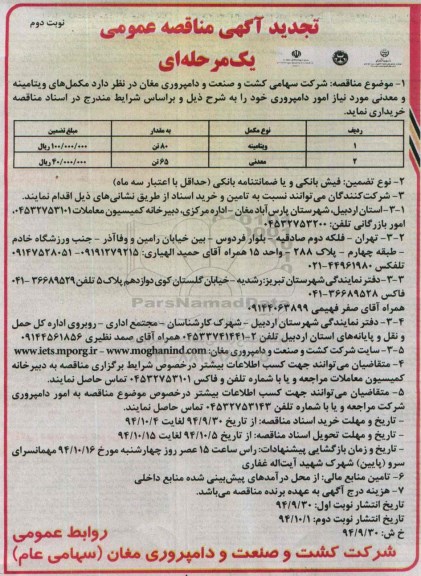 نوبت دوم
تجدید آگهی مناقصه عمومی
یک‌مرحله‌ای
۱- موضوع مناقصه: شرکت سهامی کشت و صنعت و دامپروری مغان در نظر دارد مکمل‌های ویتامینه
و معدنی مورد نیاز امور دامپروری خود را به شرح ذیل و براساس شرایط مندرج در اسناد مناقصه
خریداری نماید.
ردیف نوع مکمل به مقدار مبلغ تضمین
۱ ویتامینه ۸۰ تن ۱۰۰/۰۰۰/۰۰۰ ریال
۲ معدنی ۶۵ تن ۴۰/۰۰۰/۰۰۰ ریال
۲- نوع تضمین: فیش بانکی و یا ضمانتنامه بانکی (حداقل با اعتبار سه ماه)
۳- شرکت‌کنندگان می‌توانند نسبت به تامین و خرید اسناد از طریق نشانی‌های ذیل اقدام نمایند.
۳-۱- استان اردبیل، شهرستان پارس‌آباد مغان - اداره مرکزی، دبیرخانه کمیسیون معاملات ۰۴۵۳۲۷۵۳۱۰۱،
امور بازرگانی تلفن: ۰۴۵۳۲۷۵۳۲۰۰
۳-۲- تهران - فلکه دوم صادقیه - بلوار فردوس - بین خیابان رامین و وفاآذر - جنب ورزشگاه خادم
- طبقه چهارم - پلاک ۲۸۸ - واحد ۱۵ همراه آقای حمید الهیاری: ۰۹۱۹۱۲۷۹۲۱۵ - ۰۹۱۴۷۵۲۸۰۵۱
تلفکس ۴۴۹۶۱۹۸۰-۰۲۱
۳-۳- دفتر نمایندگی شهرستان تبریز: رشدیه - خیابان گلستان کوی دوازدهم پلاک ۵ تلفن ۳۶۶۸۹۵۲۹-۰۴۱
فاکس ۳۶۶۸۹۵۲۸-۰۴۱
همراه آقای صفر فهیمی ۰۹۱۴۴۰۶۳۸۹۹
۳-۴- دفتر نمایندگی شهرستان اردبیل - شهرک کارشناسان - مجتمع اداری - روبروی اداره کل حمل
و نقل و پایانه‌های استان اردبیل تلفن ۲-۰۴۵۳۳۷۴۱۴۴۱ همراه آقای صمد نظیری ۰۹۱۴۴۵۶۱۸۵۶
۳-۵- سایت شرکت کشت و صنعت و دامپروری مغان: www.iets.mporg.ir - www.moghanind.com
۴- متقاضیان می‌توانند جهت کسب اطلاعات بیشتر درخصوص شرایط برگزاری مناقصه به دبیرخانه
کمیسیون معاملات مراجعه و یا با شماره تلفن و فاکس ۰۴۵۳۲۷۵۳۱۰۱ تماس حاصل نمایند.
۵- متقاضیان می‌توانند جهت کسب اطلاعات بیشتر درخصوص موضوع مناقصه به امور دامپروری
شرکت مراجعه و یا با شماره تلفن ۰۴۵۳۲۷۵۳۱۴۳ تماس حاصل نمایند.
- تاریخ و مهلت خرید اسناد مناقصه: از تاریخ ۹۴/۹/۳۰ لغایت ۹۴/۱۰/۴
- تاریخ و مهلت تحویل اسناد مناقصه: از تاریخ ۹۴/۱۰/۵ لغایت ۹۴/۱۰/۱۵
- تاریخ و زمان بازگشایی پیشنهادات: راس ساعت ۱۵ عصر روز چهارشنبه مورخ ۹۴/۱۰/۱۶ مهمانسرای
سرو (پایین) شهرک شهید آیت‌اله غفاری
۶- تامین منابع مالی: از محل درآمدهای پیش‌بینی شده منابع داخلی
۷- هزینه درج آگهی به عهده برنده مناقصه می‌باشد.
تاریخ انتشار نوبت اول: ۹۴/۹/۳۰
تاریخ انتشار نوبت دوم: ۹۴/۱۰/۱
خ ش: ۹۴/۹/۳۰
روابط عمومی
شرکت کشت و صنعت و دامپروری مغان (سهامی عام)
ParsNamadData